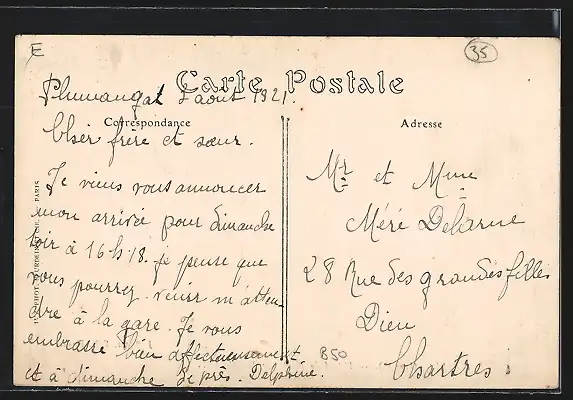 E
35
Carte Postale
Plumaugat 5 août 1921.
Correspondance
Adresse
Cher frère et sœur.
Je viens vous annoncer
mon arrivée pour dimanche
soir à 16 h 18. je pense que
vous pourrez venir m'atten-
dre à la gare. Je vous
embrasse bien affectueusement
et à dimanche. Delphine.
Mr et Mme
Méré Delarue
28 Rue des grandes filles
Dieu
Chartres
850
PARIS